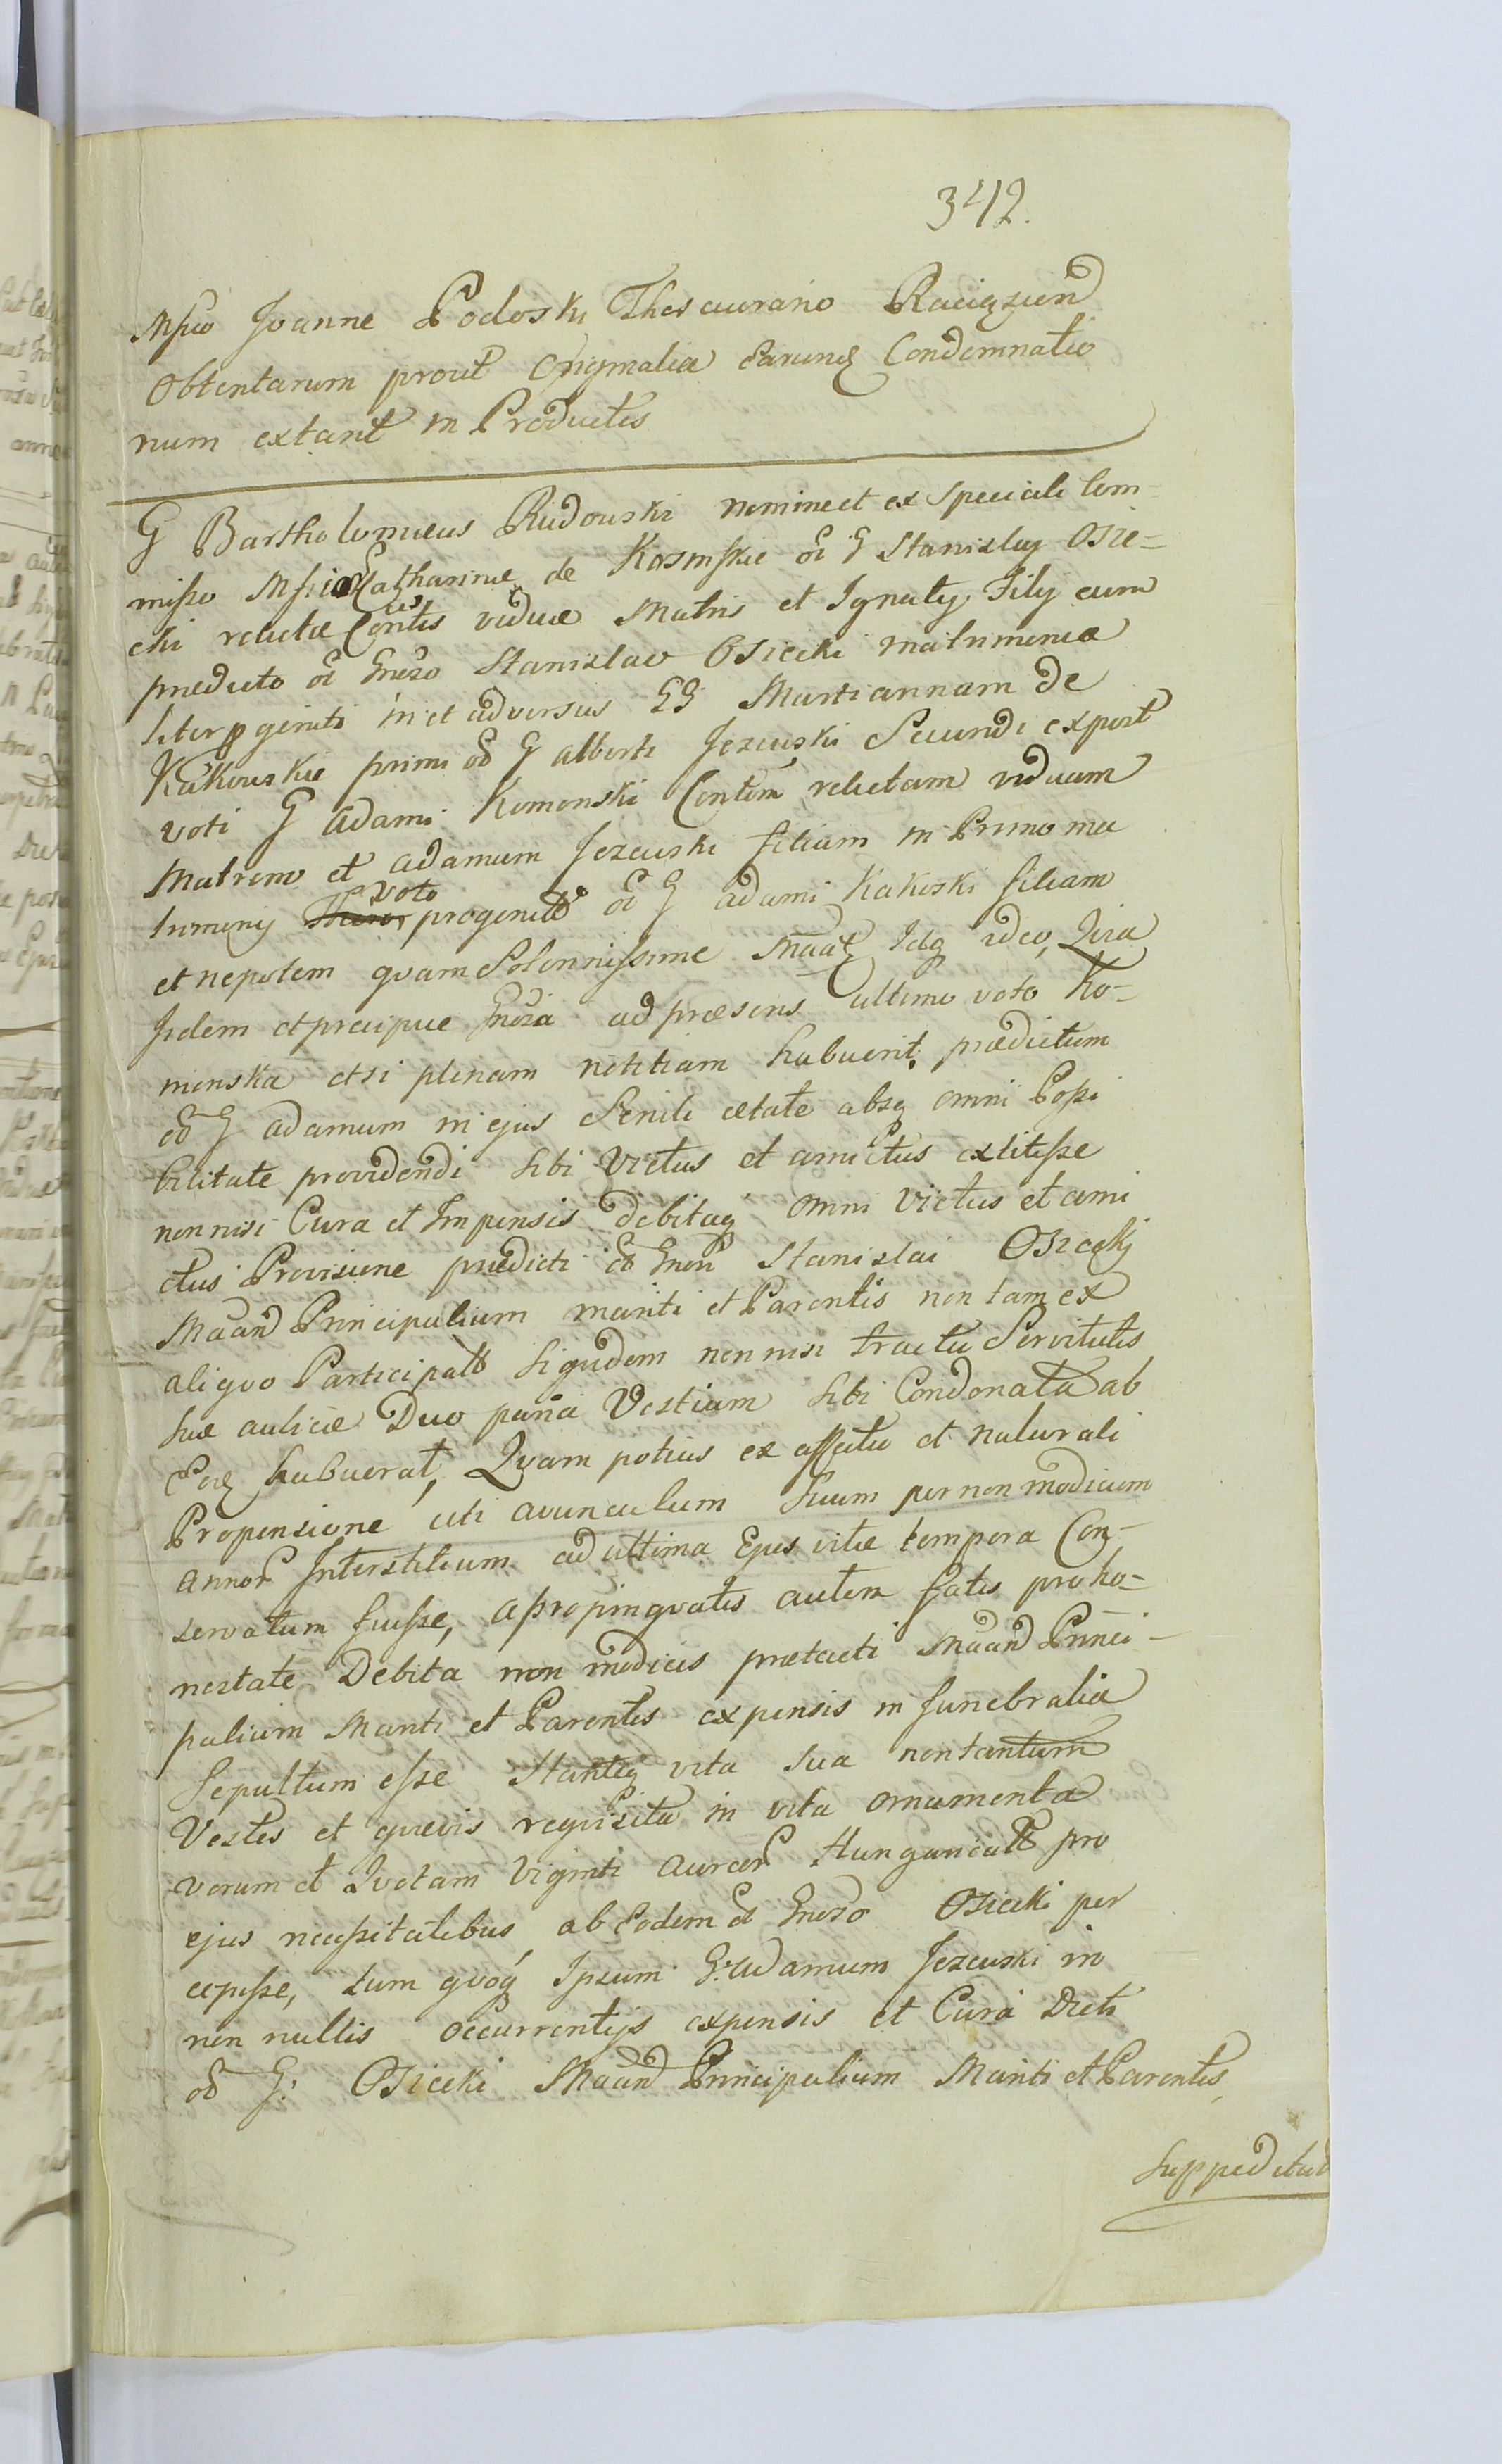 342.
Mfico Joanne Podoski Thesaurario Raciązien
Obtentarum prout Originalia earunq Condemnatio
num extant in Productis
G Bartholomeus Rudowski nomine et ex speciali Com-
misso Mficae Catharinae de Kosinskie ol G Stanislaj Osie=
cki relictae Contis viduae Matris et Ignatij Filij cum
praedicto ol Gneroso Stanislao Osiecki matrimonia
liter pgeniti in et adversus GG Mariannam de
Kakowskie primi ol G Alberti Jezewski Secundi expost
voti G Adami Komenski Contem relictam viduam
Matrem et Adamum Jezewski filium in Primo ma
trimonij voto progenitt ol G Adami Kakoski filiam
et nepotem quam Solennissime Maat Idq ideo, Quia
Iidem et praecipue Gnerosa ad praesens ultimo voto Ko=
menska etsi plenam notitiam habuerit, praedictum
ol G Adamum in ejus Senili aetate absq omni Possi
bilitate providendi sibi Victus et amictus extitisse
non nisi Cura et Impensis debitaq omni Victus et ami
ctus Provisione praedicti ol Gneri Stanislai Osiecki
Maand Principalium mariti et Parentis non tam ex
aliquo Participatt siquidem non nisi tractu Servitutis
suae aulicae Duo paria Vestium sibi Condonata ab
Eoq habuerat, Quam potius ex affectu et naturali
Propensione uti avunculum suum per non modicum
annor Interstitium ad ultima Ejus vitae tempora Con-
servatum fuisse, apropinquatis autem fatis pro ho=
nestate Debita non modicis praetacti Maand Princi-
palium Mariti et Parentis expensis in funebralia
Sepultum esse Stanteq vita sua non tantum
Vestes et quaevis requisita in vita ornamenta
verum et Quotam Viginti aureor Hungaricatt pro
ejus necessitatibus ab Eodem ol Gneroso Osiecki per
cepisse, tum quoq Ipsum G: Adamum Jezewski in
non nullis occurrentijs expensis et Cura Dicti
ol G: Osiecki Maand Principalium Mariti et Parentis
Suppeditat